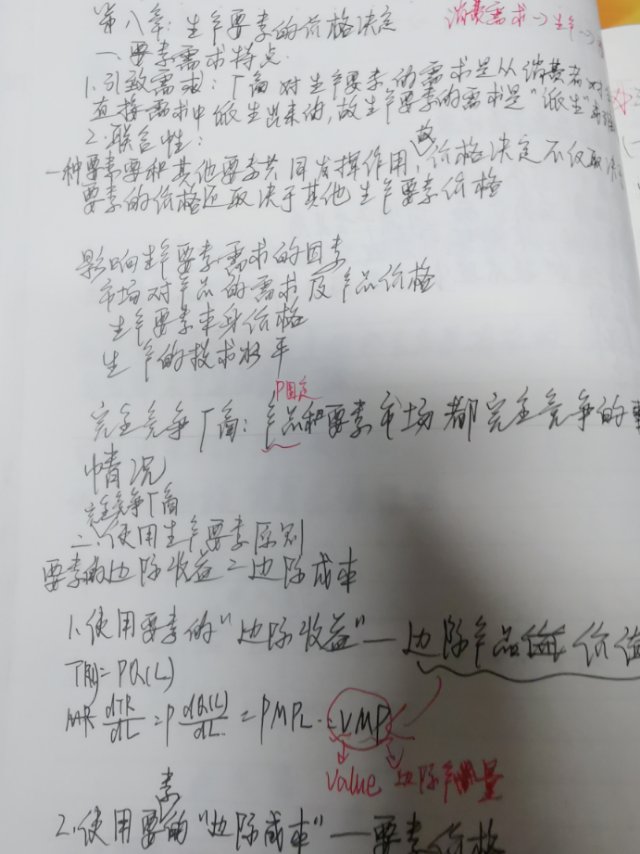 第八章：生产要素的价格决定
消费需求→生产→
一.要素需求特点
1.引致需求：厂商对生产要素的需求是从消费者对
直接需求中派生出来的，故生产要素的需求是"派生"
2.联合性：
一种要素要和其他要素共同发挥作用，故价格决定不仅取决
要素的价格还取决于其他生产要素价格
影响生产要素需求的因素
市场对产品的需求及产品价格
生产要素本身价格
生产的技术水平
P固定
完全竞争厂商：产品和要素市场都完全竞争的
情况
完全竞争厂商
二.使用生产要素原则
要素的边际收益=边际成本
1.使用要素的"边际收益"—边际产品价值
=PQ(L)
MR dTR/dL=P dQ(L)/dL=PMPL=VMP
Value 边际产量
2.使用要素的"边际成本"—要素价格